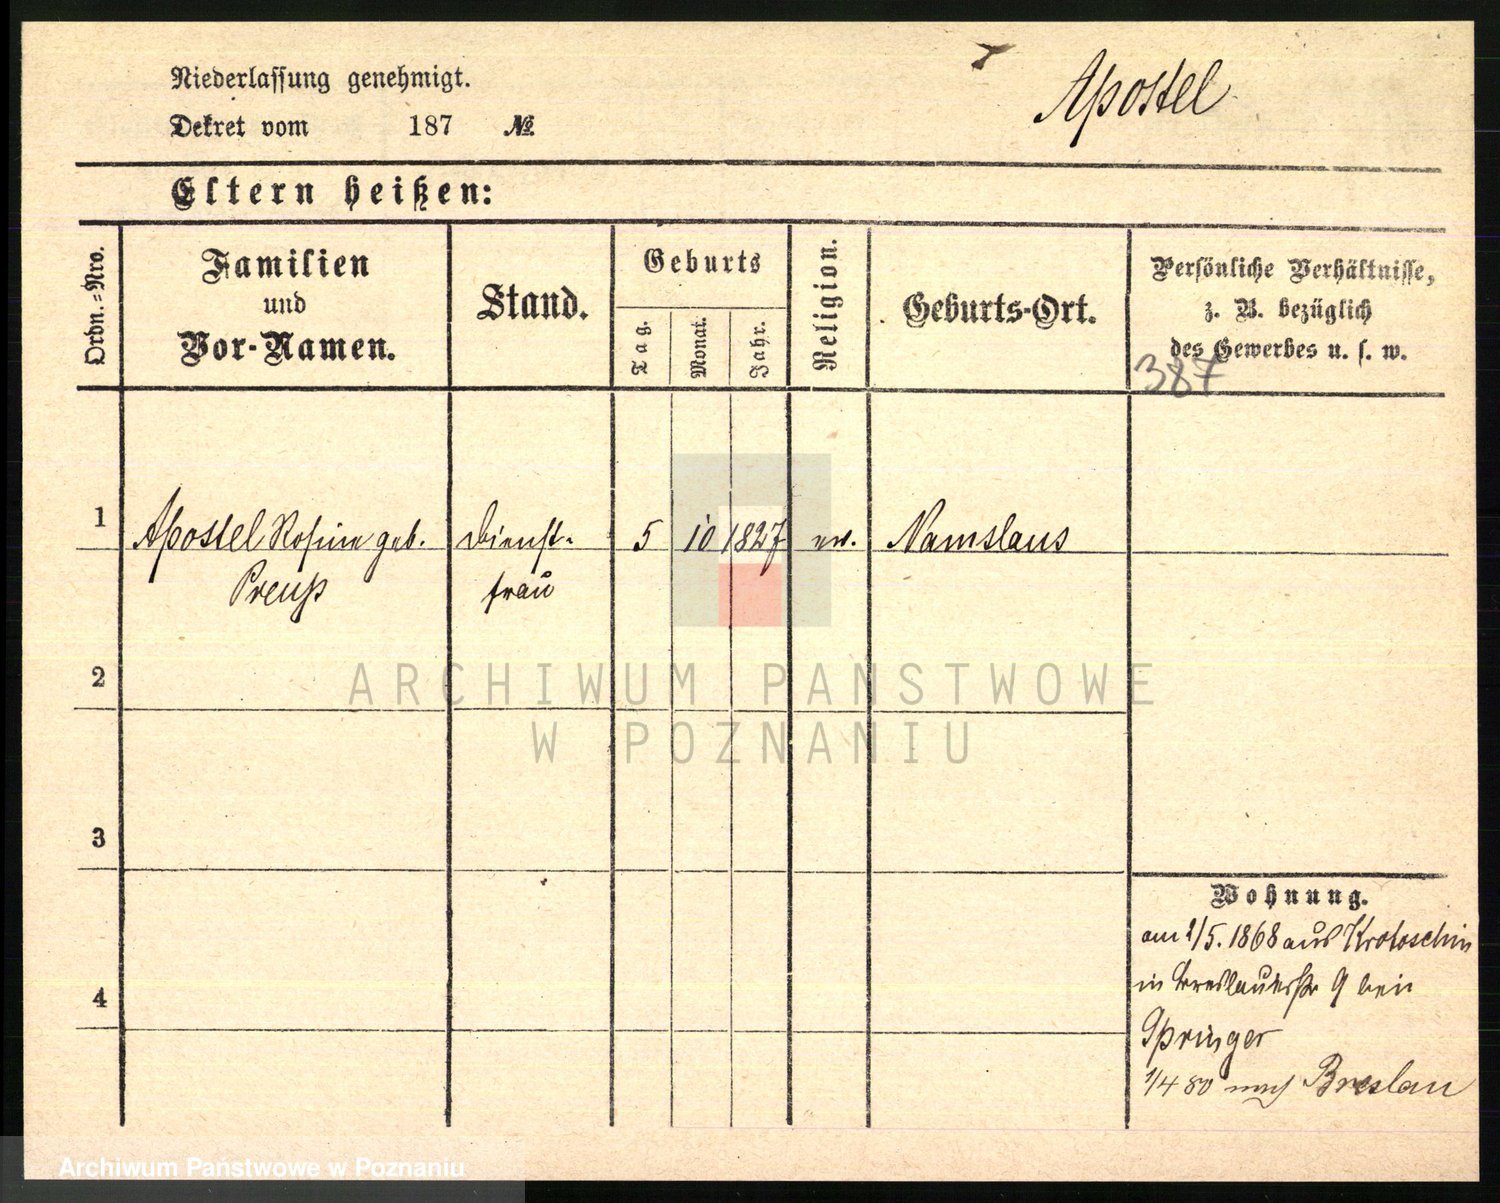 Niederlassung genehmigt.
Apostel
Dekret vom 187 №
Eltern heißen:
Ordn.=Nro.
Familien
und
Vor-Namen.
Stand.
Geburts
Tag.
Monat.
Jahr.
Religion.
Geburts-Ort.
Persönliche Verhältnisse,
z. B. bezüglich
des Gewerbes u. s. w.
387
1 Apostel Rosine geb. Dienst- 5 10 1827 ev. Namslaus
Preuß frau
2
ARCHIWUM PAŃSTWOWE
W POZNANIU
3
Wohnung.
am 2/5. 1868 aus Krotoschin
in Breslauerstr 9 bei
Springer
1/4 80 nach Breslau
4
Archiwum Państwowe w Poznaniu